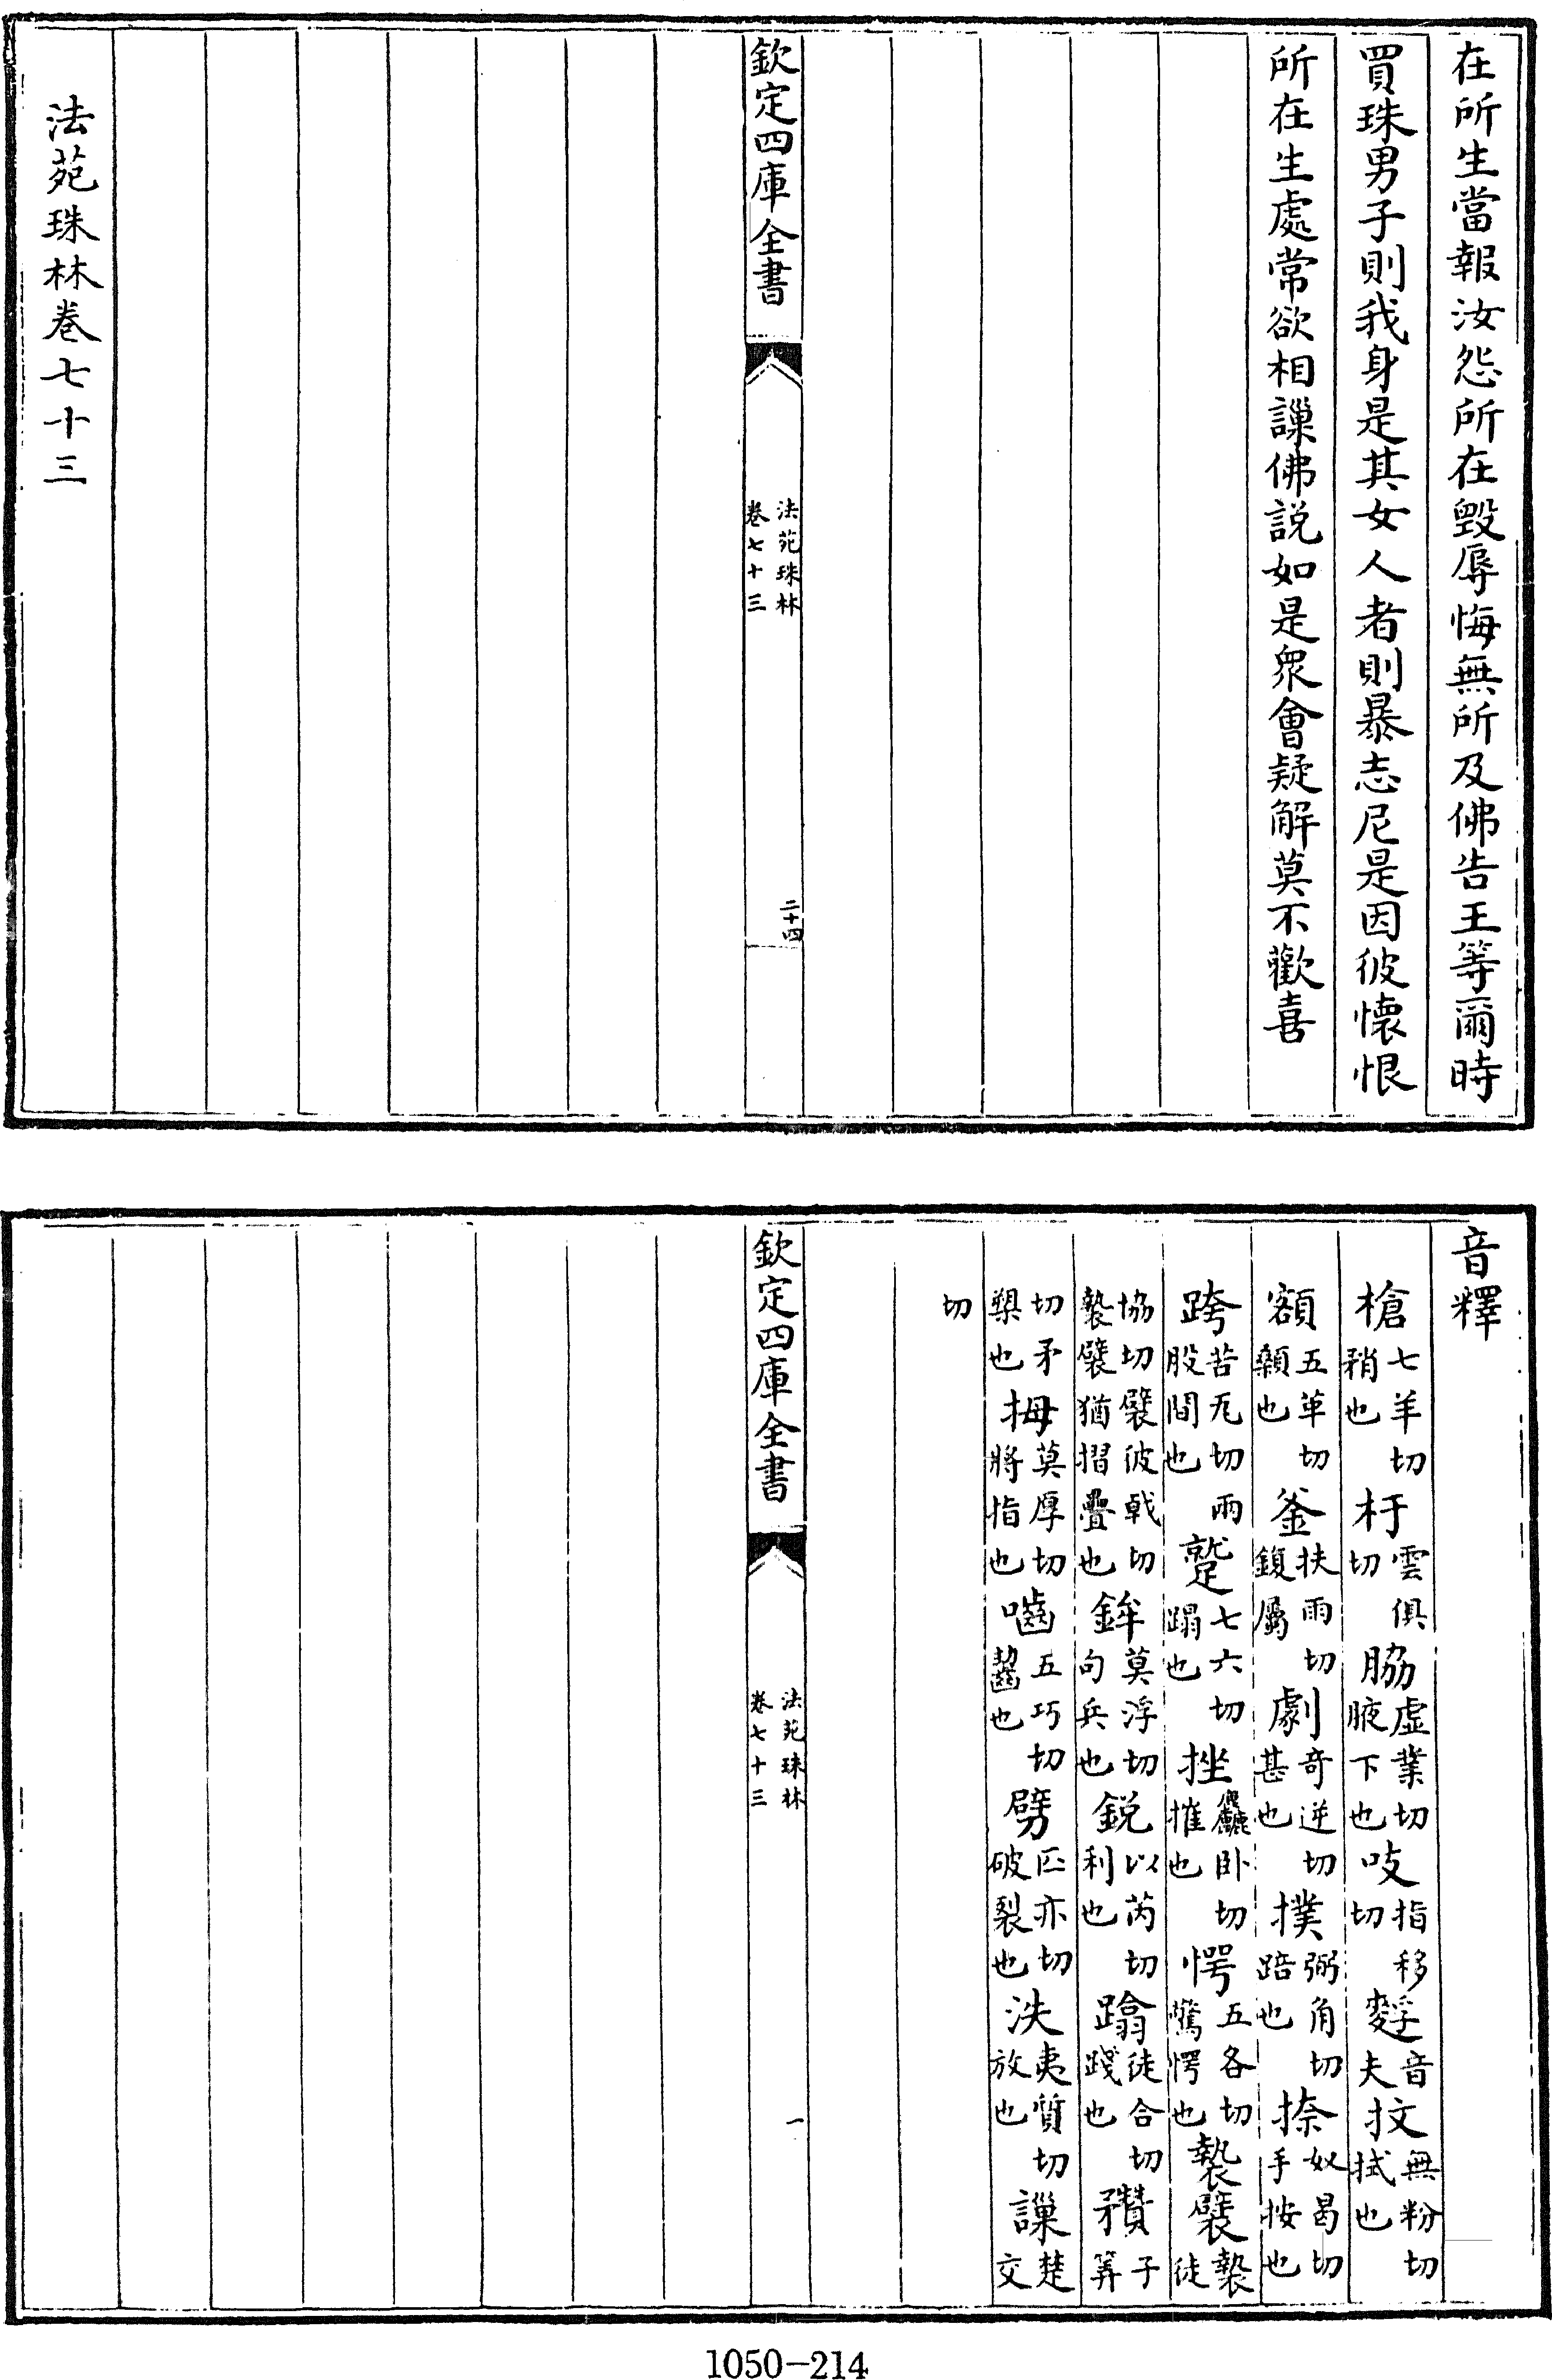 在所生當報汝怨所在毀辱悔無所及佛告王等爾時
買珠男子則我身是其女人者則暴志尼是因彼懷恨
所在生處常欲相譟佛說如是衆會疑解莫不歡喜
欽定四庫全書
法苑珠林
卷七十三
二十四
法苑珠林卷七十三
音釋
槍七羊切矟也 杅雲俱切 脇虛業切腋下也 吱指移切 麩音夫 抆無粉切拭也
額五革切顙也 釜扶雨切鍑屬 劇奇逆切甚也 撲弼角切踣也 捺奴曷切手按也
跨苦瓦切兩股間也 蹵七六切蹋也 挫麤卧切摧也 愕五各切驚愕也 褺襞褺徒
協切襞彼戟切褺襞猶摺疊也 鉾莫浮切句兵也 鋭以芮切利也 蹹徒合切踐也 穳子筭
切矛槊也 拇莫厚切將指也 嚙五巧切齧也 劈匹亦切破裂也 泆夷質切放也 譟楚交
切
欽定四庫全書
法苑珠林
卷七十三
一
1050-214